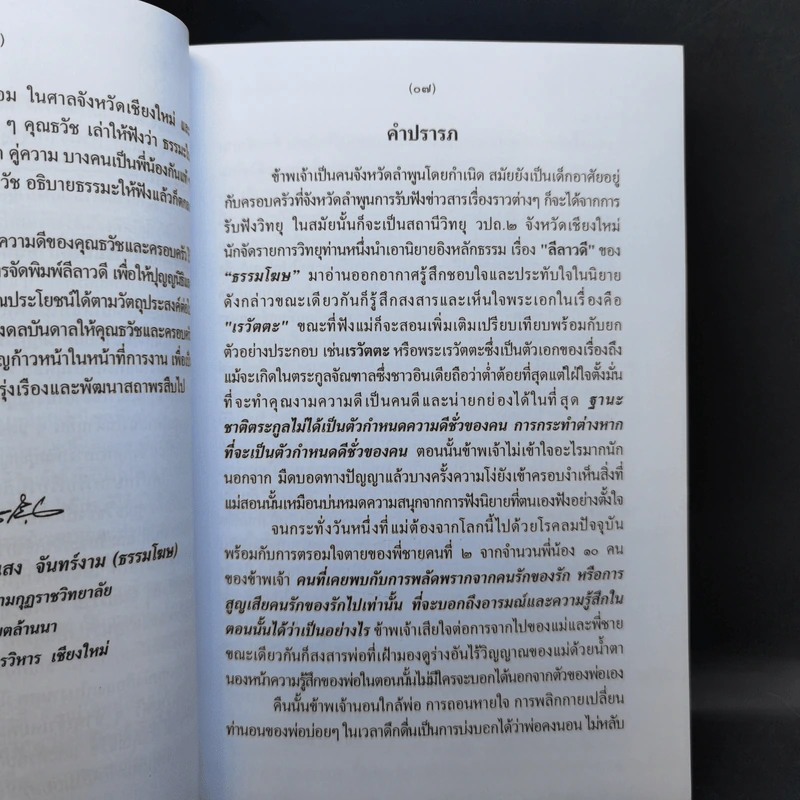 )
อม ในศาลจังหวัดเชียงใหม่ และ
ๆ คุณธวัช เล่าให้ฟังว่า ธรรมะใ
คู่ความ บางคนเป็นพี่น้องกันแท้ๆ
วัช อธิบายธรรมะให้ฟังแล้วก็ตกลง
ความดีของคุณธวัชและครอบครัว
รจัดพิมพ์ลีลาวดี เพื่อให้ปุญญนิธิและ
ณประโยชน์ได้ตามวัตถุประสงค์ต่อไป
งดลบันดาลให้คุณธวัชและครอบครัว
ญก้าวหน้าในหน้าที่การงาน เพื่อเป็
รุ่งเรืองและพัฒนาสถาพรสืบไป
แสง จันทร์งาม (ธรรมโฆษ)
ามกุฏราชวิทยาลัย
ขตล้านนา
รวิหาร เชียงใหม่
(๐๗)
คำปรารภ
ข้าพเจ้าเป็นคนจังหวัดลำพูนโดยกำเนิด สมัยยังเป็นเด็กอาศัยอยู่
กับครอบครัวที่จังหวัดลำพูนการรับฟังข่าวสารเรื่องราวต่างๆ ก็จะได้จากการ
รับฟังวิทยุ ในสมัยนั้นก็จะเป็นสถานีวิทยุ วปถ.๒ จังหวัดเชียงใหม่
นักจัดรายการวิทยุท่านหนึ่งนำเอานิยายอิงหลักธรรม เรื่อง "ลีลาวดี" ของ
"ธรรมโฆษ" มาอ่านออกอากาศรู้สึกชอบใจและประทับใจในนิยาย
ดังกล่าวขณะเดียวกันก็รู้สึกสงสารและเห็นใจพระเอกในเรื่องคือ
"เรวัตตะ" ขณะที่ฟังแม่ก็จะสอนเพิ่มเติมเปรียบเทียบพร้อมกับยก
ตัวอย่างประกอบ เช่นเรวัตตะ หรือพระเรวัตตะซึ่งเป็นตัวเอกของเรื่องถึง
แม้จะเกิดในตระกูลจัณฑาลซึ่งชาวอินเดียถือว่าต่ำต้อยที่สุดแต่ใฝ่ใจตั้งมั่น
ที่จะทำคุณงามความดีเป็นคนดีและน่ายกย่องได้ในที่สุด ฐานะ
ชาติตระกูลไม่ได้เป็นตัวกำหนดความดีชั่วของคน การกระทำต่างหาก
ที่จะเป็นตัวกำหนดดีชั่วของคน ตอนนั้นข้าพเจ้าไม่เข้าใจอะไรมากนัก
นอกจาก มืดบอดทางปัญญาแล้วบางครั้งความโง่ยังเข้าครอบงำเห็นสิ่งที่
แม่สอนนั้นเหมือนบ่นหมดความสนุกจากการฟังนิยายที่ตนเองฟังอย่างตั้งใจ
จนกระทั่งวันหนึ่งที่แม่ต้องจากโลกนี้ไปด้วยโรคลมปัจจุบัน
พร้อมกับการตรอมใจตายของพี่ชายคนที่ ๒ จากจำนวนพี่น้อง ๑๐ คน
ของข้าพเจ้า คนที่เคยพบกับการพลัดพรากจากคนรักของรัก หรือการ
สูญเสียคนรักของรักไปเท่านั้น ที่จะบอกถึงอารมณ์และความรู้สึกใน
ตอนนั้นได้ว่าเป็นอย่างไร ข้าพเจ้าเสียใจต่อการจากไปของแม่และพี่ชาย
ขณะเดียวกันก็สงสารพ่อที่เฝ้ามองดูร่างอันไร้วิญญาณของแม่ด้วยน้ำตา
นองหน้าความรู้สึกของพ่อในตอนนั้นไม่มีใครจะบอกได้นอกจากตัวของพ่อเอง
คืนนั้นข้าพเจ้านอนใกล้พ่อ การถอนหายใจ การพลิกกายเปลี่ยน
ท่านอนของพ่อบ่อยๆ ในเวลาดึกดื่นเป็นการบ่งบอกได้ว่าพ่อคงนอน ไม่หลับ